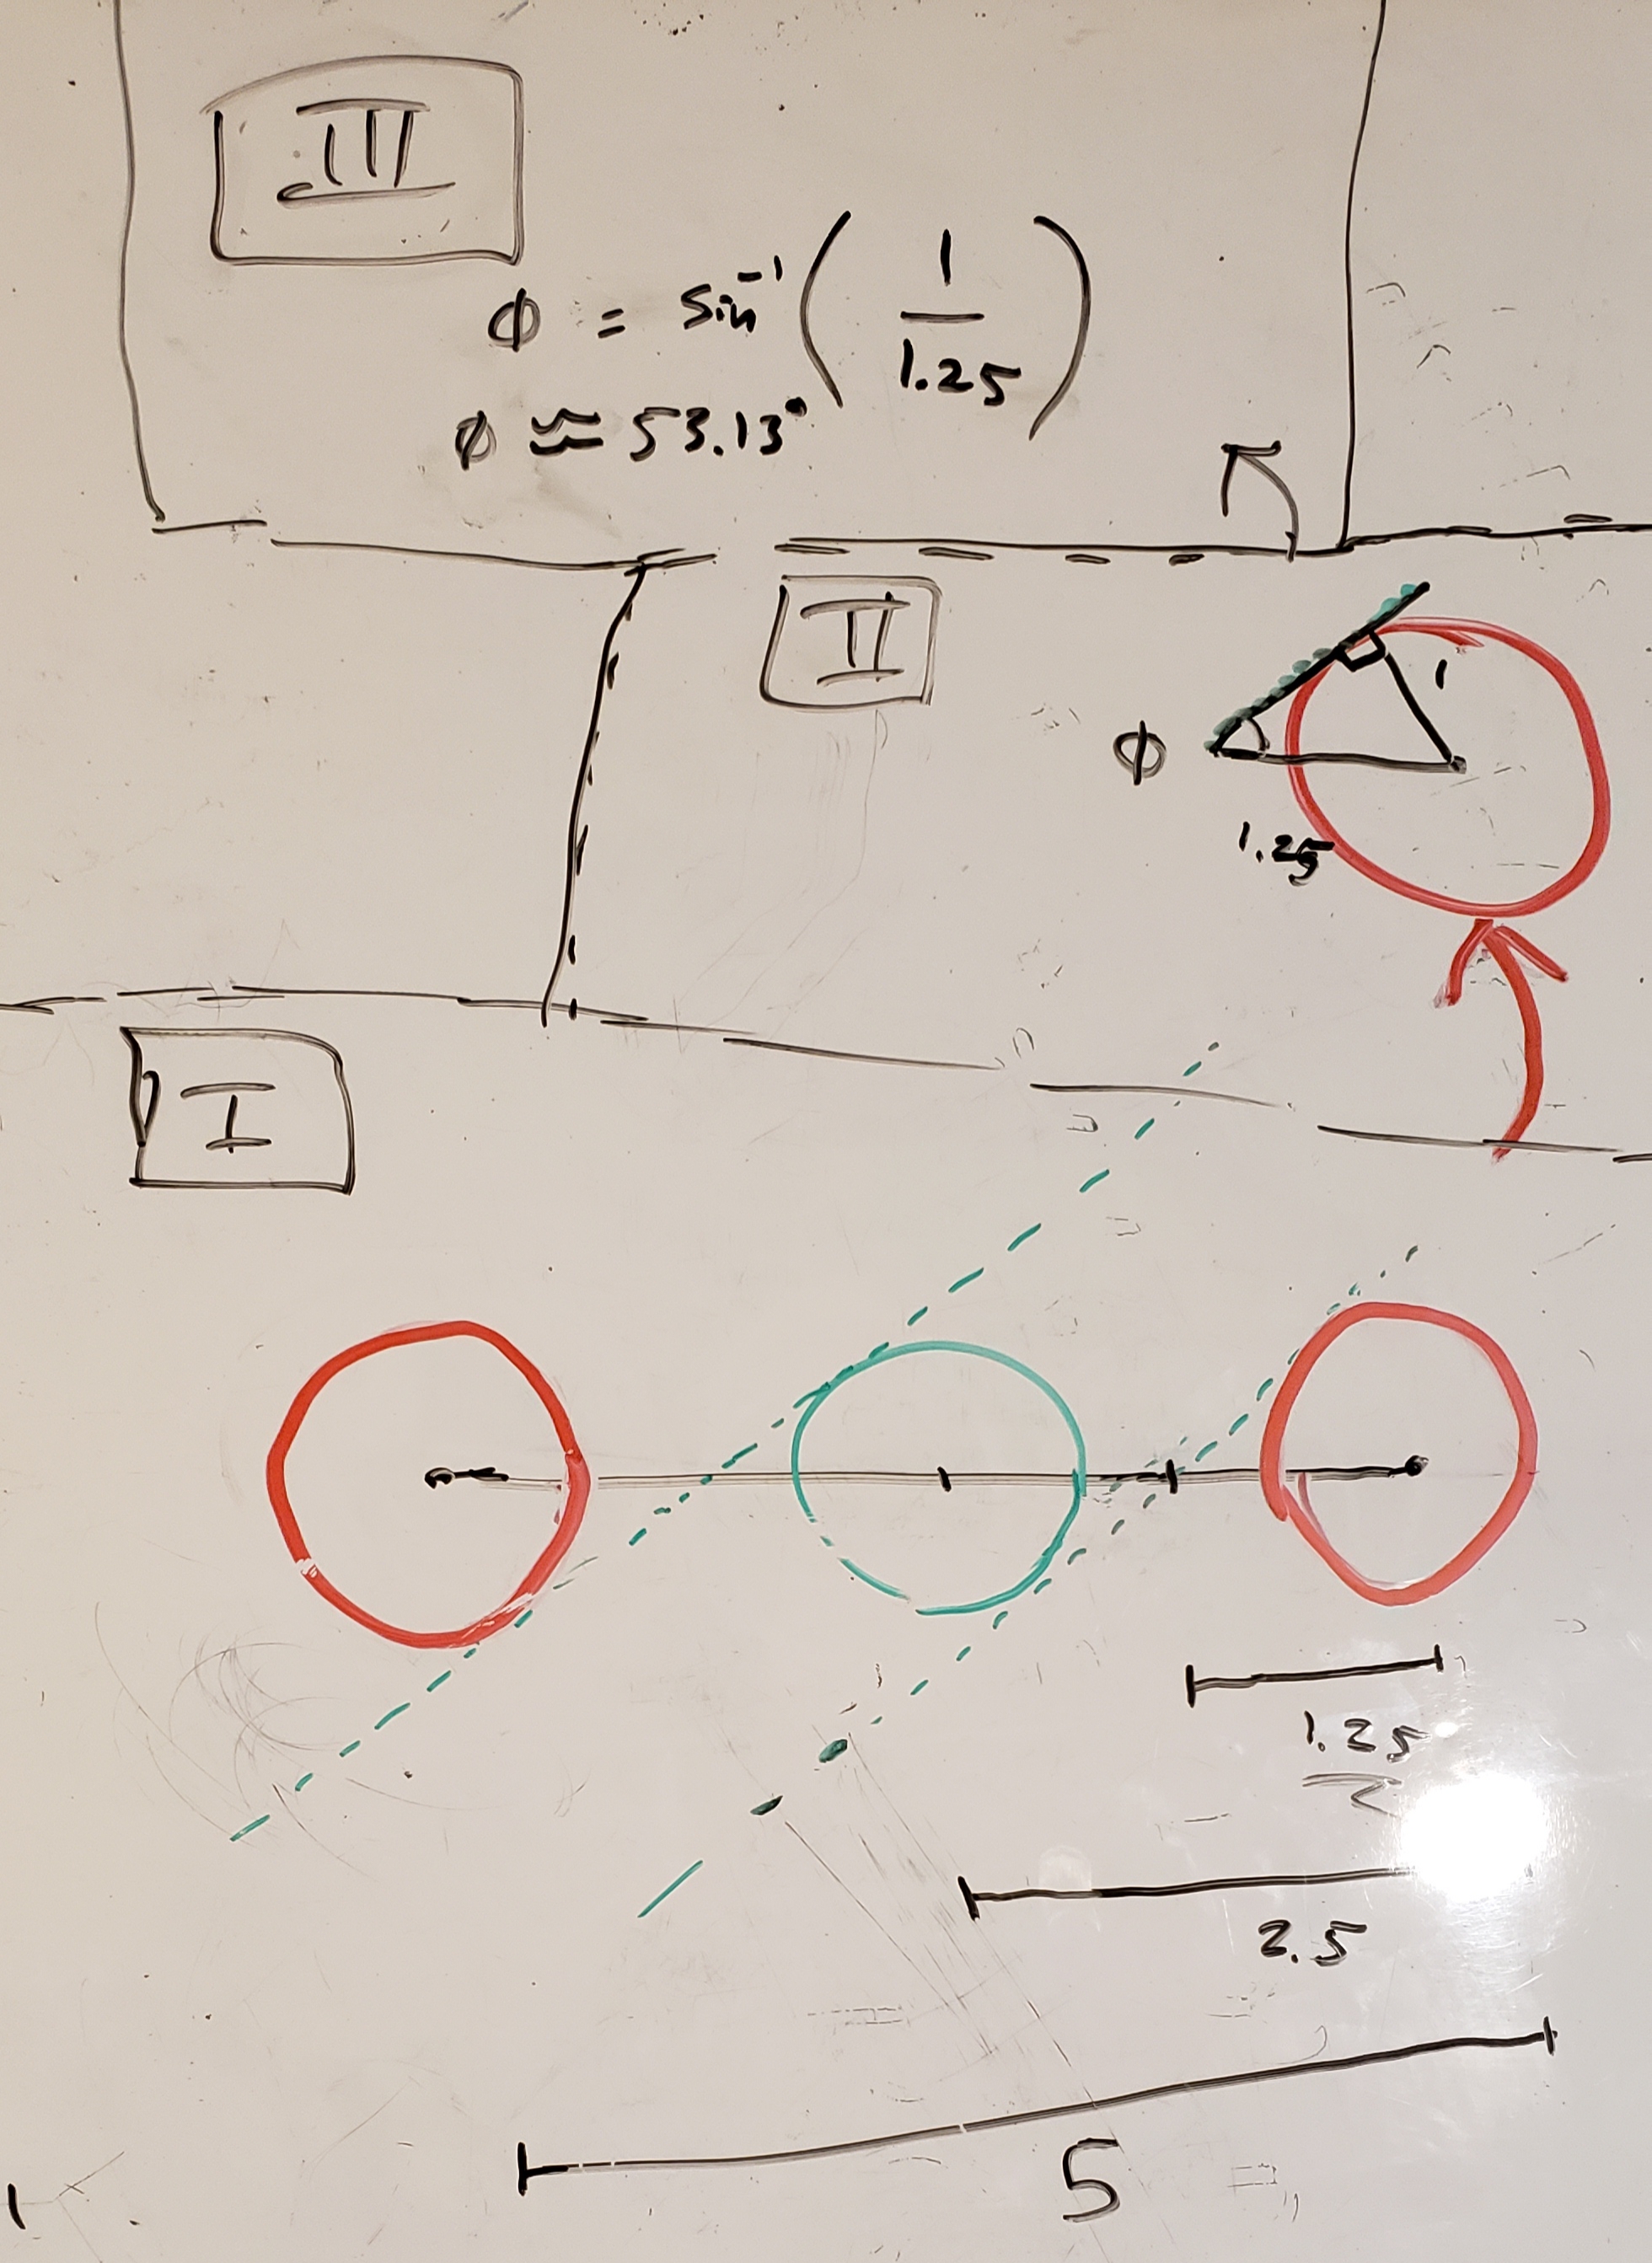 III
ϕ = sin⁻¹ ( 1 / 1.25 )
ϕ ≈ 53.13°
II
1
ϕ
1.25
I
1.25
2.5
5